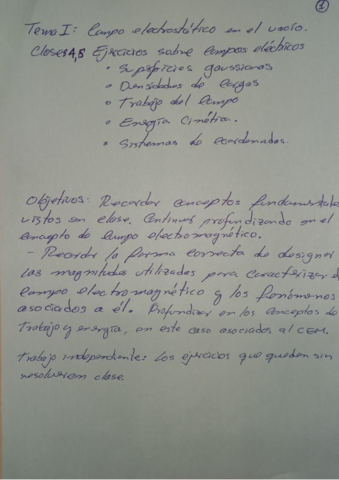 1
Tema I: Campo electrostático en el vacío.
Clases 4,5 Ejercicios sobre campos eléctricos
• Superficies gaussianas
• Densidades de cargas
• Trabajo del campo
• Energía Cinética.
• Sistemas de coordenadas.
Objetivos: Recordar conceptos fundamentales
vistos en clase. Continuar profundizando en el
concepto de campo electromagnético.
- Recordar la forma correcta de designar
las magnitudes utilizadas para caracterizar el
campo electromagnético y los fenómenos
asociados a él. Profundizar en los conceptos de
trabajo y energía, en este caso asociados al CEM.
Trabajo independiente: Los ejercicios que queden sin
resolver en clase